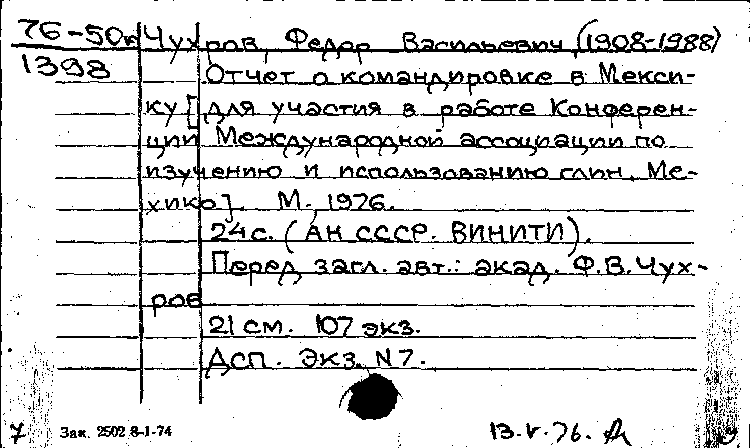 76-50к Чухров, Федор Васильевич (1908-1988)
1398 Отчет о командировке в Мекси-
ку [для участия в работе Конферен-
ции Международной ассоциации по
изучению и использованию глин, Ме-
хико]. М., 1976.
24 с. (АН СССР. ВИНИТИ).
Перед загл. авт.: акад. Ф.В. Чух-
ров
21 см. 107 экз.
Дсп. Экз. N 7.
7 Зак. 2502 8-1-74 13.V.76.